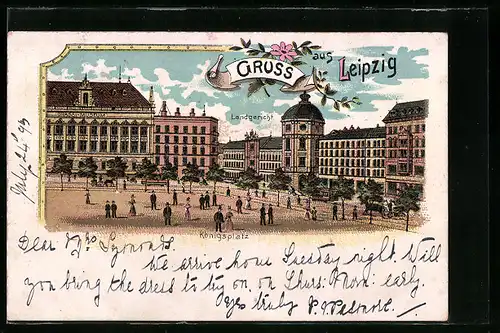 GRUSS aus Leipzig
Landgericht
Königsplatz
July 24th 95
Dear Mrs
We arrive home Tuesday night. Will
you bring the dress to try on, on Thurs. Morn: early.
Yrs truly P. J.